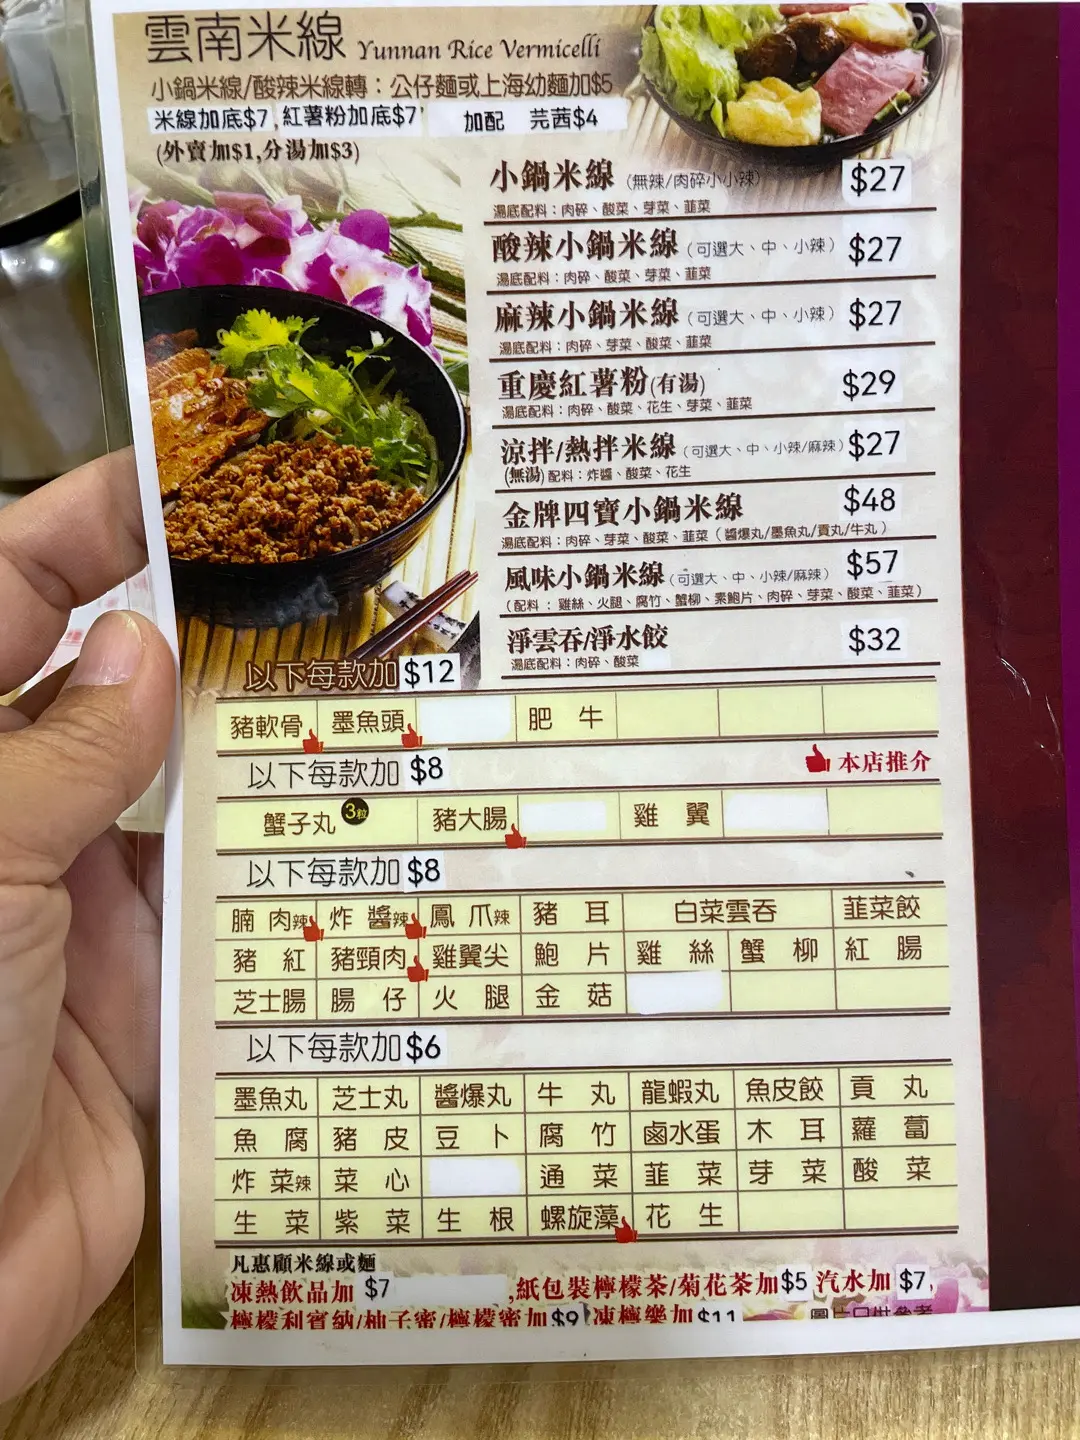 雲南米線 Yunnan Rice Vermicelli
小鍋米線/酸辣米線轉：公仔麵或上海幼麵加$5
米線加底$7,紅薯粉加底$7' 加配 芫茜$4
(外賣加$1,分湯加$3)
小鍋米線 (無辣/肉碎小小辣) $27
湯底配料：肉碎、酸菜、芽菜、韮菜
酸辣小鍋米線 (可選大、中、小辣) $27
湯底配料：肉碎、酸菜、芽菜、韮菜
麻辣小鍋米線 (可選大、中、小辣) $27
湯底配料：肉碎、芽菜、酸菜、韮菜
重慶紅薯粉(有湯) $29
湯底配料：肉碎、酸菜、花生、芽菜、韮菜
涼拌/熱拌米線 (可選大、中、小辣/麻辣) $27
(無湯) 配料：炸醬、酸菜、花生
金牌四寶小鍋米線 $48
湯底配料：肉碎、芽菜、酸菜、韮菜（醬爆丸/墨魚丸/貢丸/牛丸）
風味小鍋米線 (可選大、中、小辣/麻辣) $57
（配料：雞絲、火腿、腐竹、蟹柳、素鮑片、肉碎、芽菜、酸菜、韮菜）
淨雲吞/淨水餃 $32
湯底配料：肉碎、酸菜
以下每款加 $12
豬軟骨 墨魚頭 肥牛
以下每款加 $8 本店推介
蟹子丸 3粒 豬大腸 雞翼
以下每款加 $8
腩肉辣 炸醬辣 鳳爪辣 豬耳 白菜雲吞 韮菜餃
豬紅 豬頸肉 雞翼尖 鮑片 雞絲 蟹柳 紅腸
芝士腸 腸仔 火腿 金菇
以下每款加 $6
墨魚丸 芝士丸 醬爆丸 牛丸 龍蝦丸 魚皮餃 貢丸
魚腐 豬皮 豆卜 腐竹 鹵水蛋 木耳 蘿蔔
炸菜辣 菜心 通菜 韮菜 芽菜 酸菜
生菜 紫菜 生根 螺旋藻 花生
凡惠顧米線或麵
凍熱飲品加 $7 ,紙包裝檸檬茶/菊花茶加$5 汽水加 $7,
檸檬利賓納/柚子蜜/檸檬蜜加$9 凍檸樂加$11 圖片只供參考